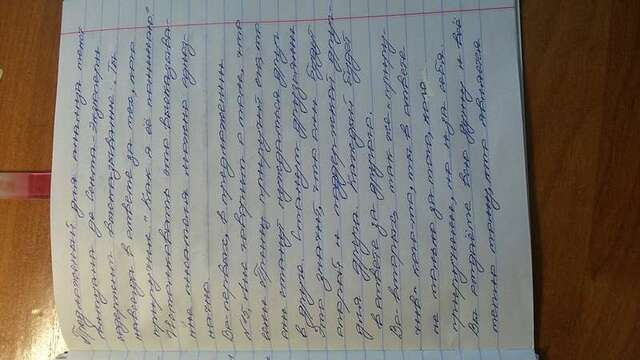 Предложенный для анализа текст
Антуана де Сента-Экзюпери
содержит высказывание: "Ты
навсегда в ответе за тех, кого
приручил." Как я её понимаю?
Истолковать это высказыва-
ние писателя можно однoз-
начно.
Во-первых, в предложении
№15, Лис говорит о том, что
если Принц приручит его, то
они станут нуждаться друг
в друге. Станут друзьями
Это значит, что они будут
опорой и поддержкой друг
для друга. Каждый будет
в ответе за другого.
Во-вторых, так же "приру-
чив" кого-то, ты в ответе
не только за того, кого
приручили, но и за себя.
Вы отдаёте всю душу и всё
тепло тому, кто является